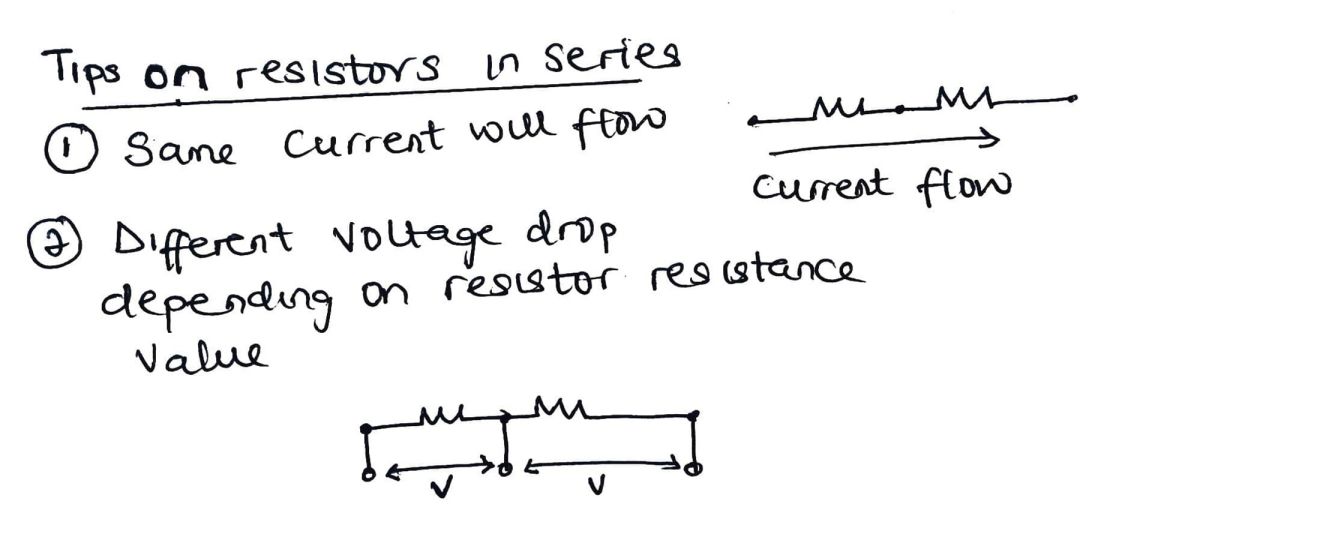 Tips on resistors in series
① Same Current will flow
Current flow
② Different voltage drop
depending on resistor resistance
Value
V
V